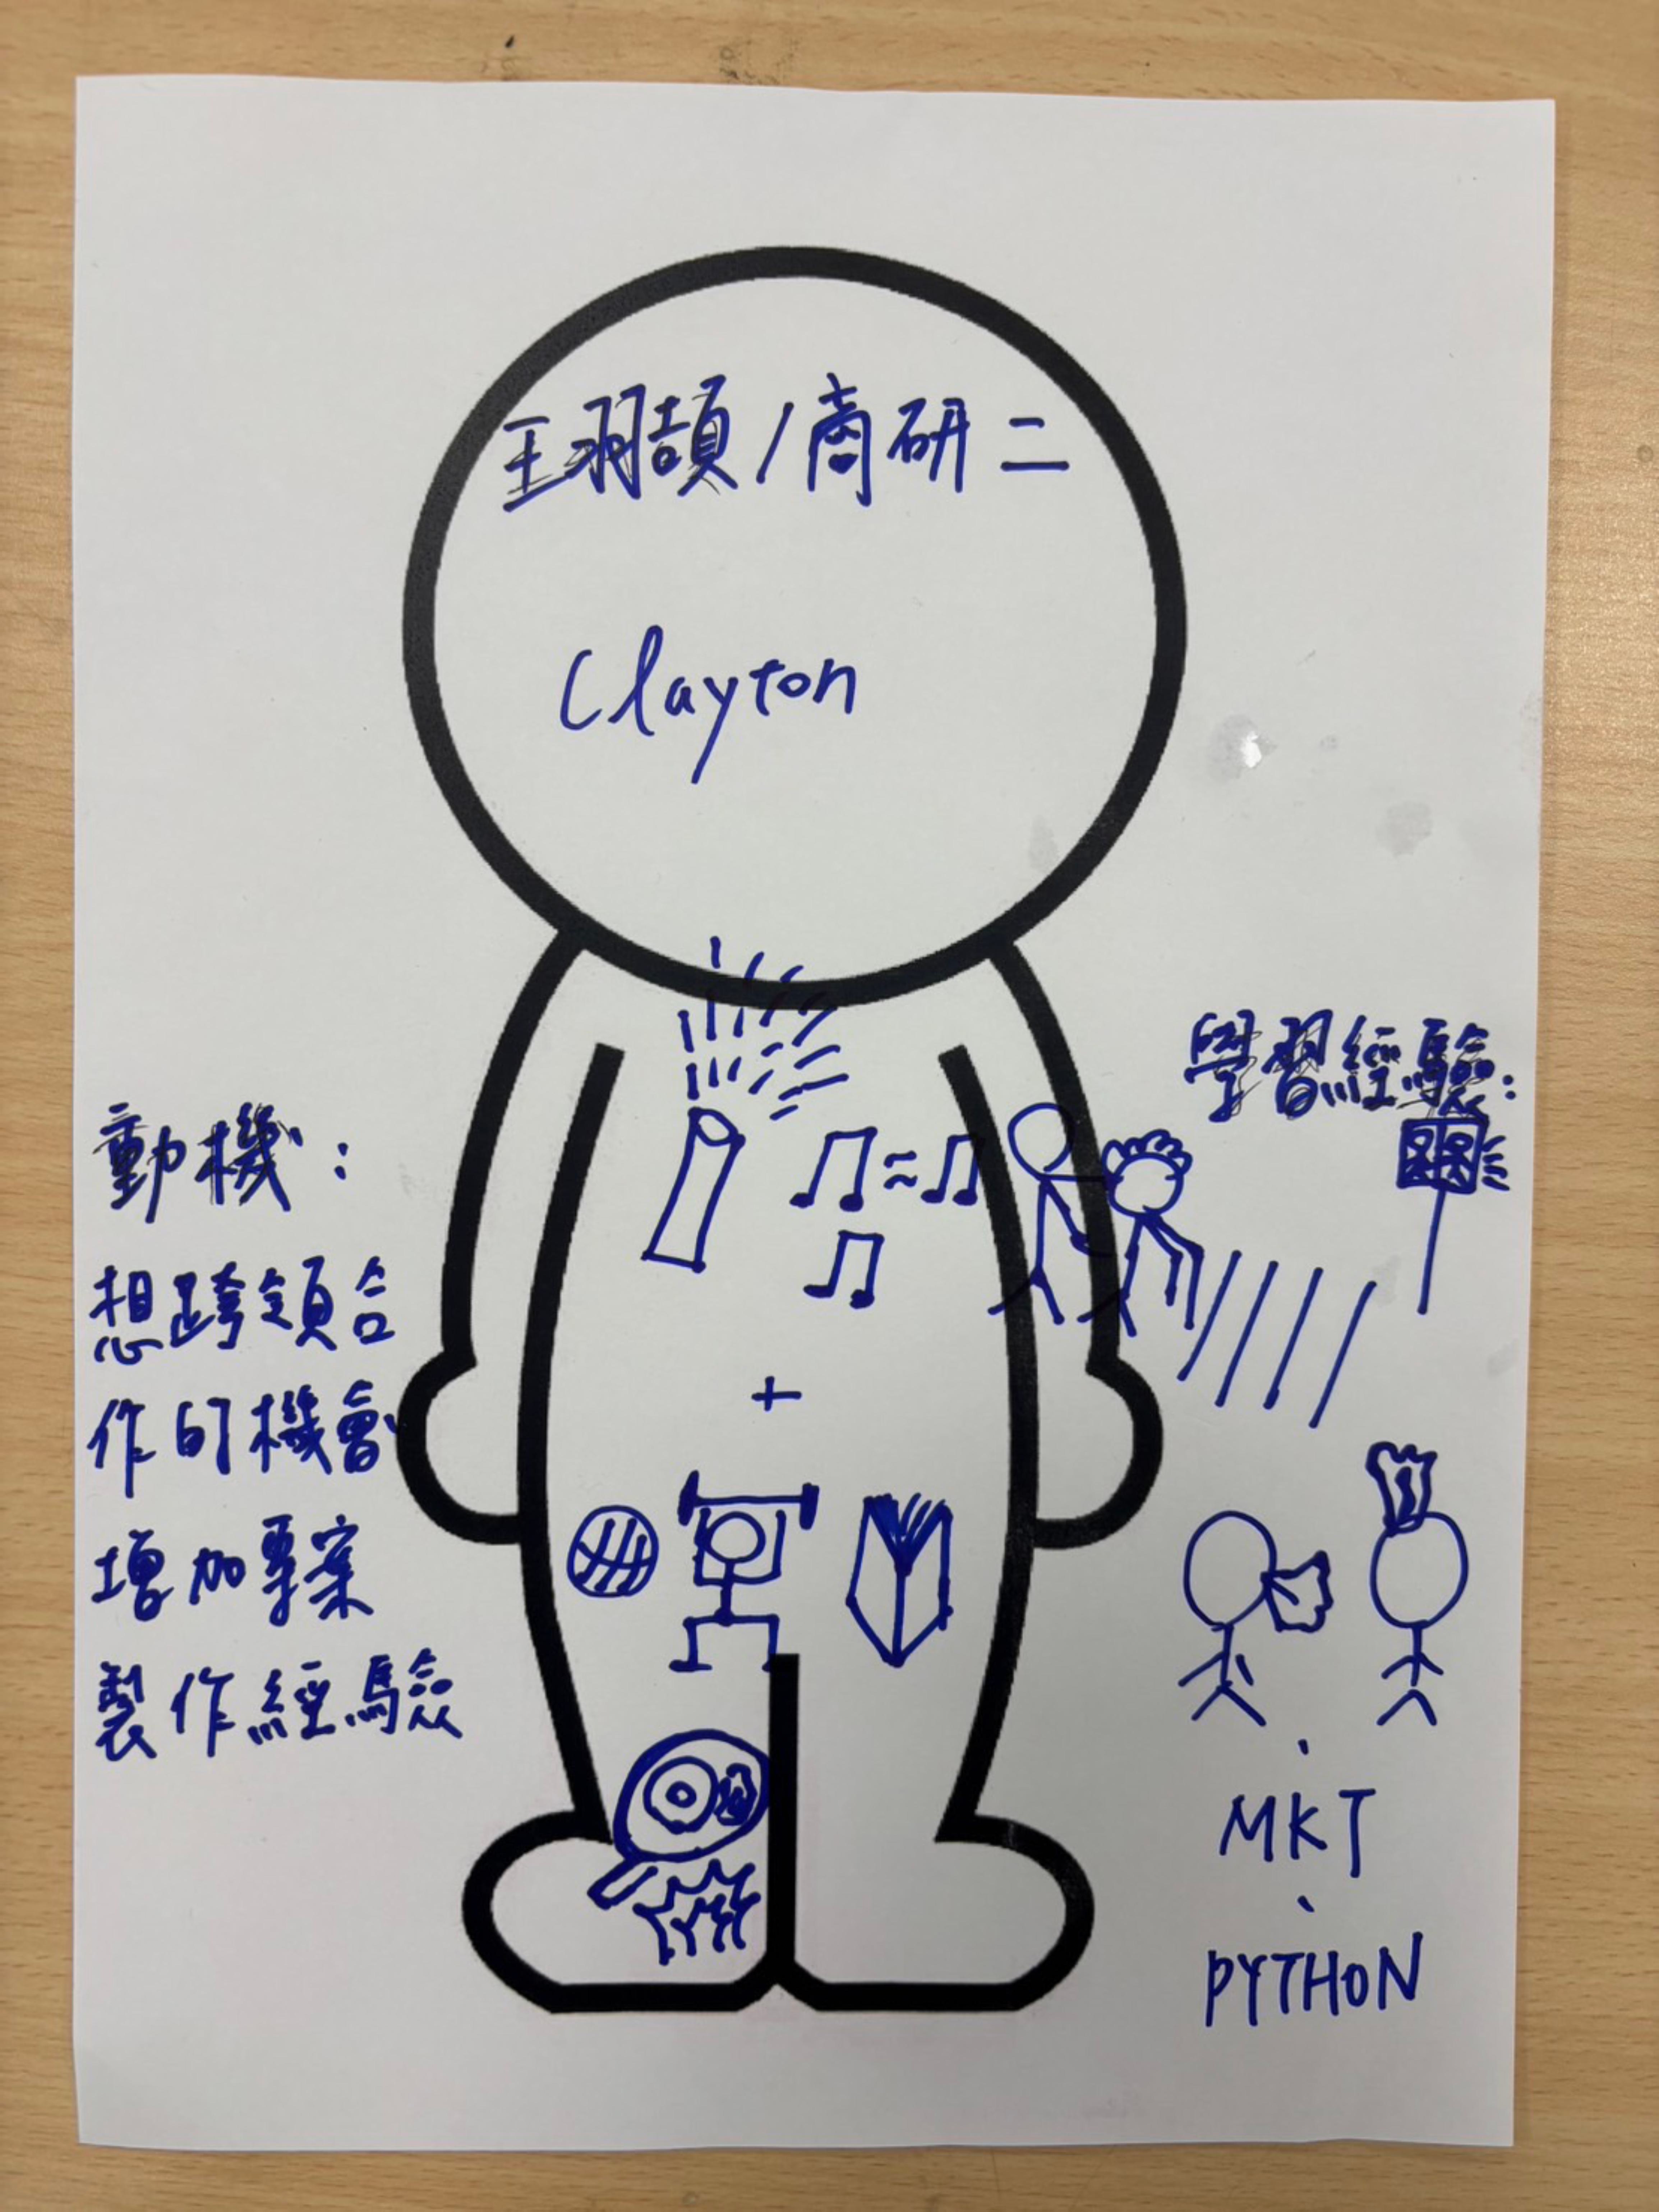 王羽頡/商研二
Clayton
動機:
想跨領合
作的機會
增加專案
製作經驗
學習經驗:
、
MKT
、
PYTHON